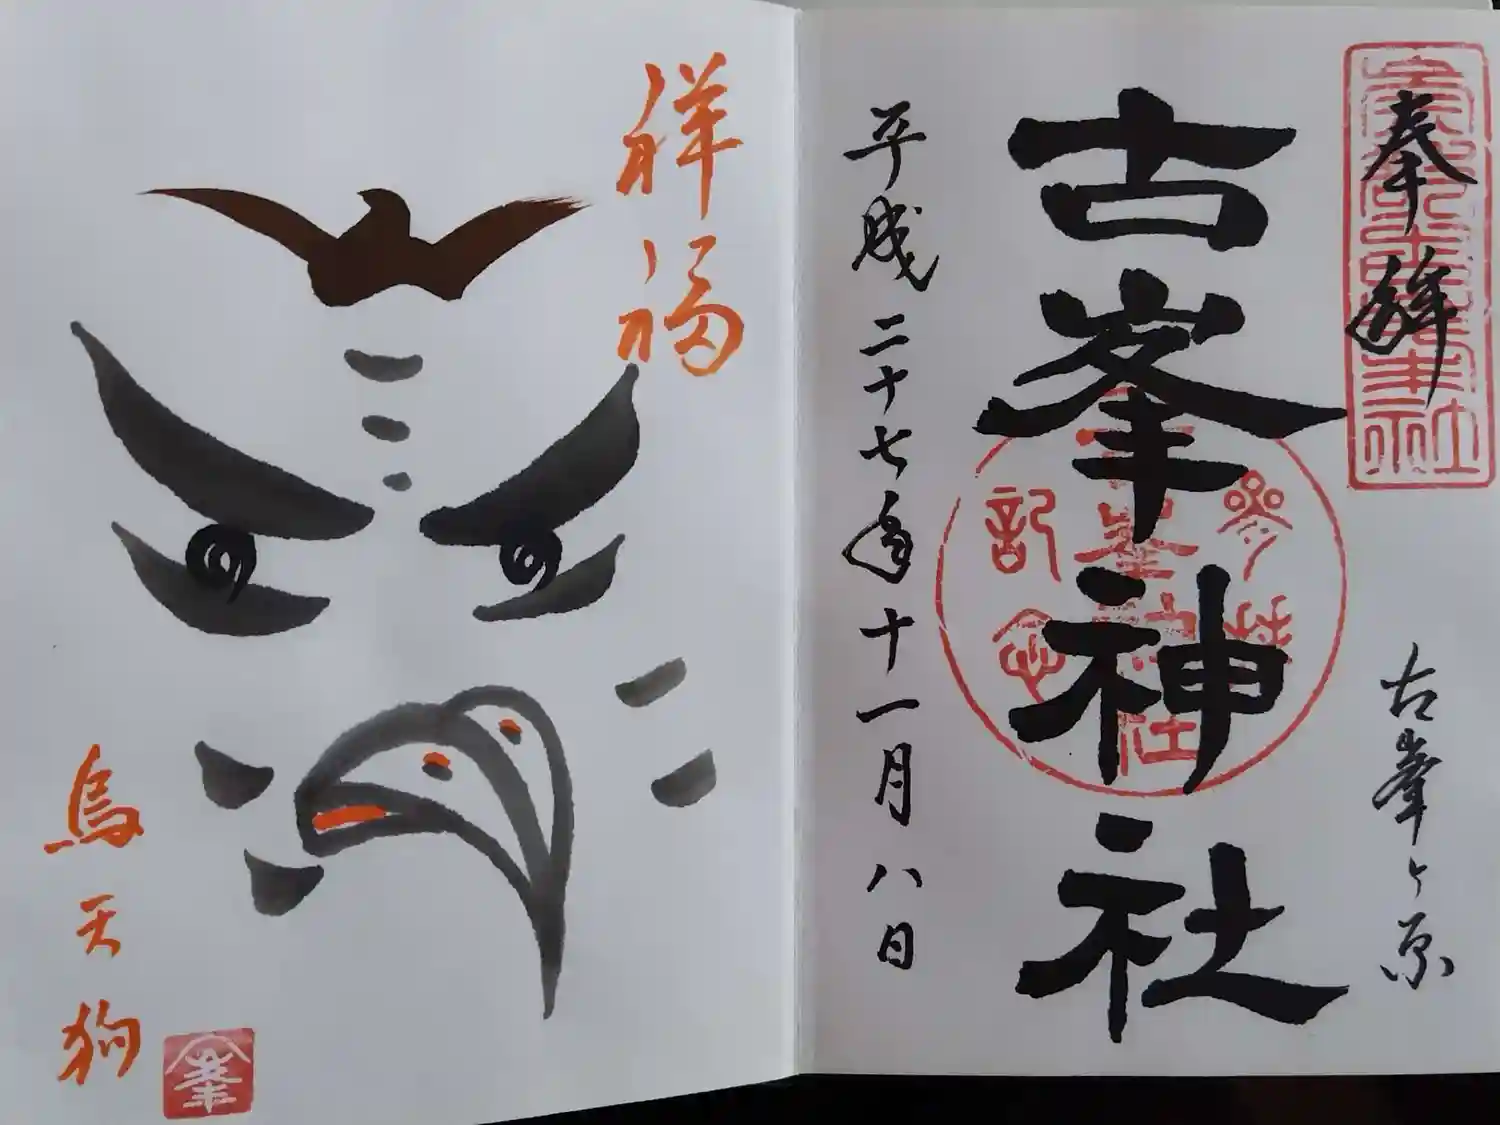 奉拝
古峯ヶ原
古峯神社
参拝
記念
平成二十七年十一月八日
祥福
烏天狗
峯